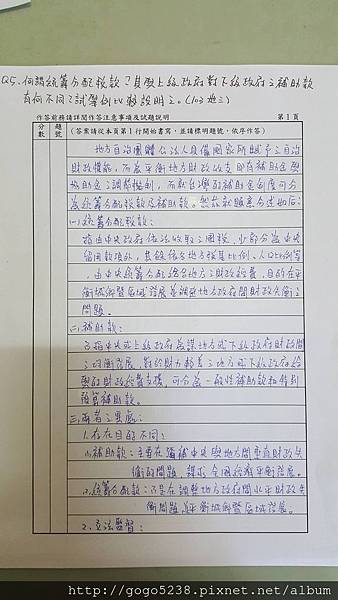 Q5、何謂統籌分配稅款?其與上級政府對下級政府之補助款
有何不同?試舉例比較說明之。(103地三)
作答前務請詳閱作答注意事項及試題說明 第1頁
分數 題號 (答案請從本頁第1行開始書寫,並請標明題號,依序作答)
地方自治團體公法人具備國家所賦予之自治
財政權能,而為平衡地方財政收支即有補助金與
協助金之調整機制,而就台灣的補助金制度可分
為統籌分配稅款及補助款。茲依就題意分述如后:
(一)統籌分配稅款:
指由中央政府依法收取之國稅,少部分為中央
留用款項外,其餘依各地方按其比例、人口比例等
,由中央統籌分配給各地方之財政經費,目的在平
衡城鄉暨區域發展並調整地方政府間財政失衡之
問題。
(二)補助款:
乃指中央或上級政府為謀地方或下級政府財政間
之均衡發展,對於財力較差之地方或下級政府給
與的財政經費支援,可分為一般性補助款和特別
預算補助款。
三、兩者之異處:
1.存在目的不同:
(1)補助款:主要在彌補中央與地方間垂直財政失
衡的問題,謀求全國經濟平衡發展。
(2)統籌分配款:乃是在調整地方政府間水平財政失
衡問題或平衡城鄉暨區域發展。
2.立法監督:
http://gogo5238.pixnet.net/album